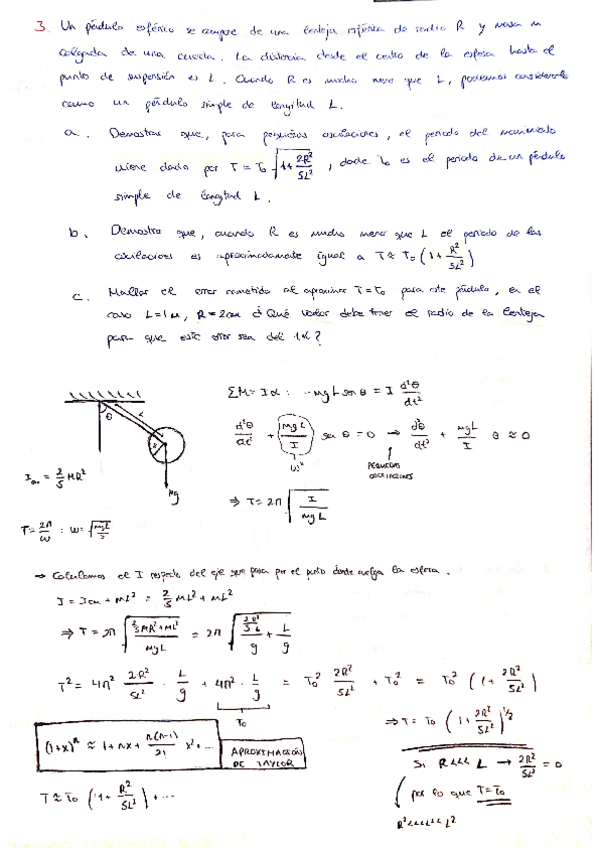 3. Un péndulo esférico se compone de una lenteja esférica de radio R y masa m
colgada de una cuerda. La distancia desde el centro de la esfera hasta el
punto de suspensión es L. Cuando R es mucho menor que L, podemos considerarlo
como un péndulo simple de longitud L.
a. Demostrar que, para pequeñas oscilaciones, el periodo del movimiento
viene dado por T = T₀ √(1 + 2R²/5L²), donde T₀ es el periodo de un péndulo
simple de longitud L.
b. Demostrar que, cuando R es mucho menor que L el periodo de las
oscilaciones es aproximadamente igual a T ≈ T₀ (1 + R²/5L²)
c. Hallar el error cometido al aproximar T = T₀ para este péndulo, en el
caso L = 1m, R = 2cm ¿Qué valor debe tener el radio de la lenteja
para que este error sea del 1%?
θ
L
R
Mg
ΣM = Iα : -MgL sen θ = I d²θ/dt²
d²θ/dt² + MgL/I sen θ = 0 → d²θ/dt² + MgL/I θ ≈ 0
ω²
PEQUEÑAS
OSCILACIONES
⇒ T = 2π √(I/MgL)
I = 2/5 MR²
T = 2π/ω : ω = √(MgL/I)
→ Calculamos el I respecto del eje que pasa por el punto donde cuelga la esfera.
I = Icm + ML² = 2/5 ML² + ML²
⇒ T = 2π √((2/5 MR² + ML²)/MgL) = 2π √((2R²/5L)/g + L/g)
T² = 4π² 2R²/5L² · L/g + 4π² · L/g = T₀² 2R²/5L² + T₀² = T₀² (1 + 2R²/5L²)
T₀
⇒ T = T₀ (1 + 2R²/5L²)^1/2
(1+x)ⁿ ≈ 1 + nx + n(n-1)/2! x² + ...
APROXIMACIÓN
DE TAYLOR
Si R <<<< L → 2R²/5L² = 0
por lo que T = T₀
R² <<<<<< L²
T ≈ T₀ (1 + R²/5L²) + ...